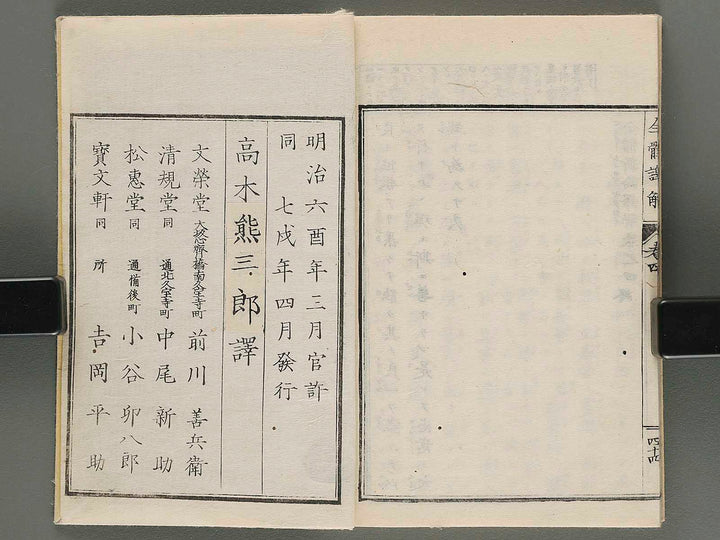 全體譯解 卷四
四十四
明治六酉年三月官許
同 七戌年四月發行
高木熊三郎譯
文榮堂 大坂心齊橋南久宝寺町 前川善兵衛
清規堂 同 通北久宝寺町 中尾新助
松惠堂 同 通備後町 小谷卯八郎
寶文軒 同所 吉岡平助